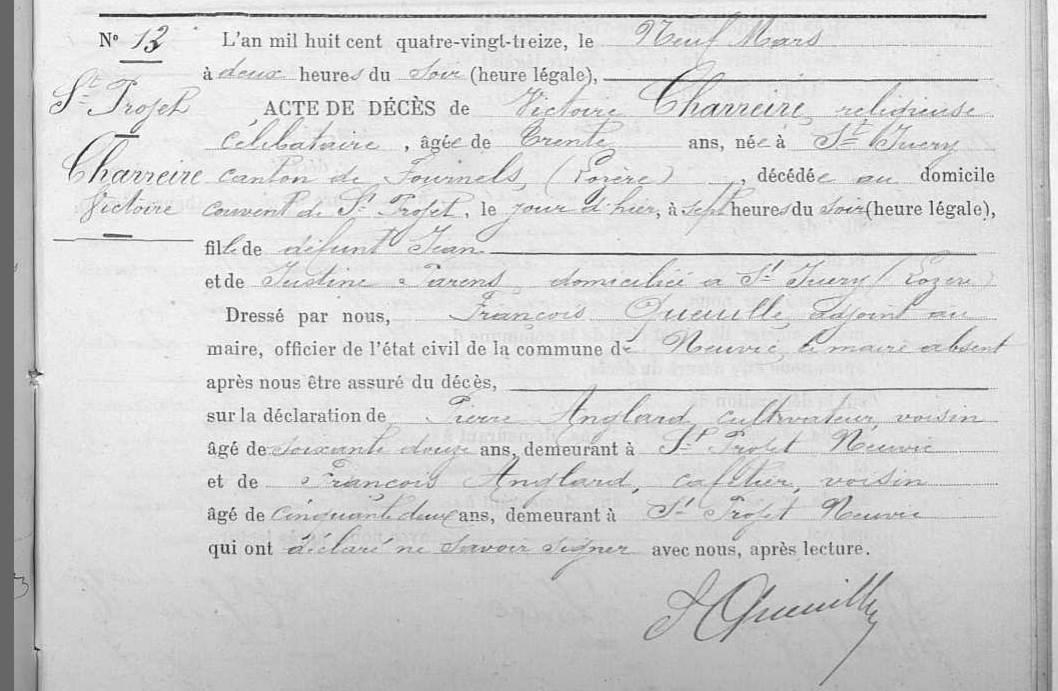 N° 13
L'an mil huit cent quatre-vingt-treize, le Neuf Mars
à deux heures du soir (heure légale),
St Projet
ACTE DE DÉCÈS de Victoire Charreire, religieuse
célibataire, âgée de trente ans, née à St Juery
Charreire
canton de Fournels, (Lozère), décédée au domicile
Victoire
couvent de St Projet, le jour d'hier, à sept heures du soir (heure légale),
fille de défunt Jean
et de Justine Parens, domiciliée à St Juery (Lozère)
Dressé par nous, François Queuille adjoint au
maire, officier de l'état civil de la commune de Neuvic, le maire absent
après nous être assuré du décès,
sur la déclaration de Pierre Anglard, cultivateur, voisin
âgé de soixante douze ans, demeurant à St Projet Neuvic
et de François Anglard, cafetier, voisin
âgé de cinquante deux ans, demeurant à St Projet Neuvic
qui ont déclaré ne savoir signer avec nous, après lecture.
Queuille